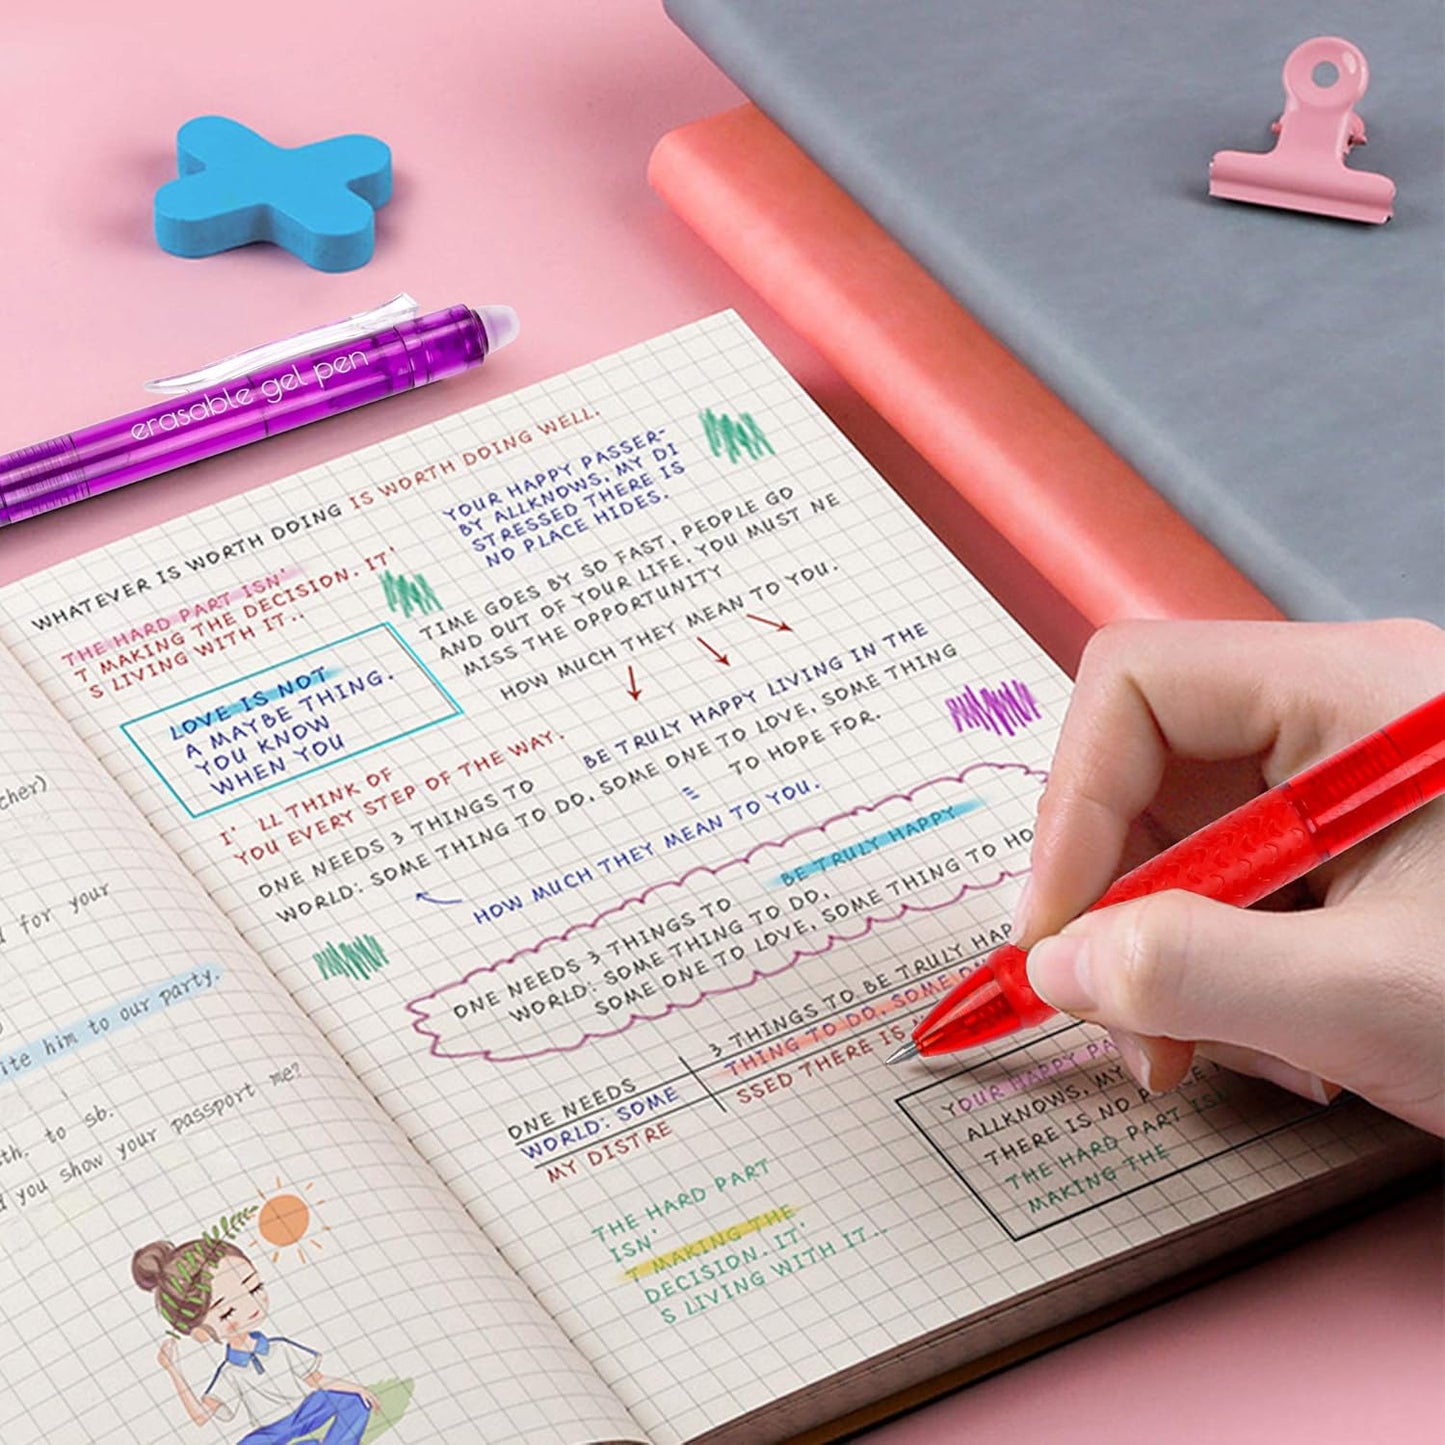 erasable gel pen
WHATEVER IS WORTH DOING IS WORTH DOING WELL.
THE HARD PART ISN'
T MAKING THE DECISION. IT'
S LIVING WITH IT..
YOUR HAPPY PASSER-
BY ALLKNOWS, MY DI
STRESSED THERE IS
NO PLACE HIDES.
TIME GOES BY SO FAST, PEOPLE GO
AND OUT OF YOUR LIFE. YOU MUST NE
MISS THE OPPORTUNITY
HOW MUCH THEY MEAN TO YOU.
LOVE IS NOT
A MAYBE THING.
YOU KNOW
WHEN YOU
I' LL THINK OF
YOU EVERY STEP OF THE WAY.
BE TRULY HAPPY LIVING IN THE
ONE NEEDS 3 THINGS TO
WORLD: SOME THING TO DO, SOME ONE TO LOVE, SOME THING
TO HOPE FOR.
HOW MUCH THEY MEAN TO YOU.
BE TRULY HAPPY
ONE NEEDS 3 THINGS TO
WORLD: SOME THING TO DO,
SOME ONE TO LOVE, SOME THING TO HO
3 THINGS TO BE TRULY HAP
THING TO DO, SOME
SSED THERE IS
ONE NEEDS
WORLD: SOME
MY DISTRE
YOUR HAPPY PA
ALLKNOWS, MY
THERE IS NO
THE HARD PART
MAKING THE
THE HARD PART
ISN'
T MAKING THE
DECISION. IT'
S LIVING WITH IT..
cher)
for your
ite him to our party.
th. to sb.
d you show your passport me?